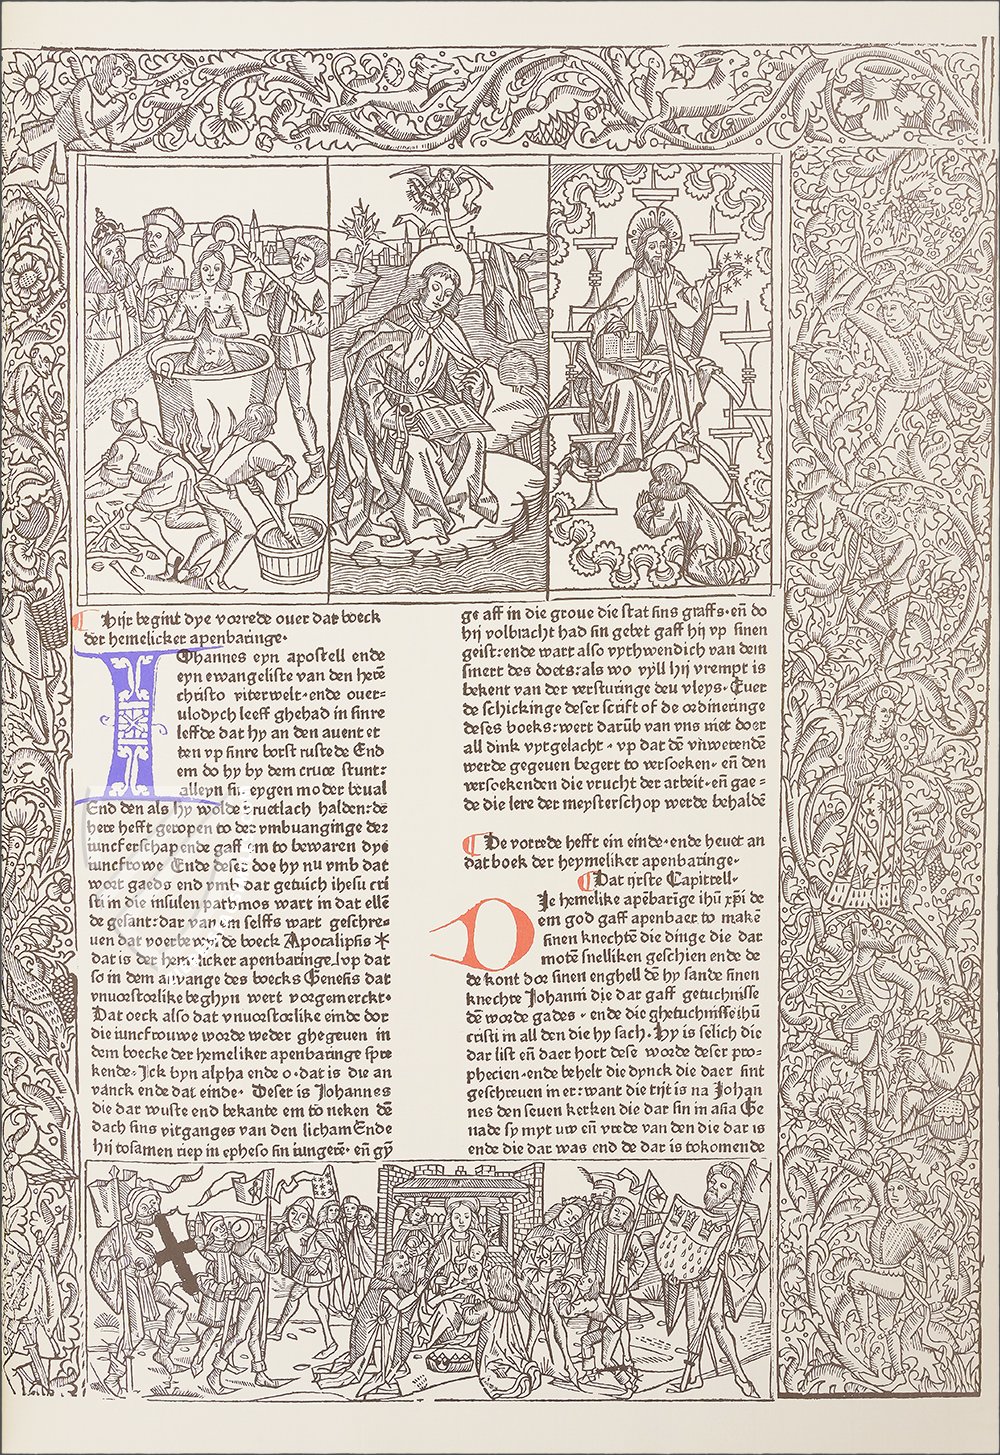 Hijr begint dye vorrede ouer dat boeck
der hemelicker apenbaringe.
IOhannes eyn apostell ende
eyn ewangeliste van den herē
christo vterwelt. ende ouer-
ulodych leeff ghehad in sinre
leffde dat hy an den auent et
ten vp sinre borst rustede End
em do hy by dem cruce stunt:
alleyn sin eygen moder beual
End den als hy wolde bruetlach halden: dē
here hefft geropen to der ymbuanginge der
iuncferschapende gaff em to bewaren dye
iuncfrowe Ende deser doe hy nu vmb dat
wort gaeds end vmb dat getuich ihesu cri
sti in die insulen pathmos wart in dat ellē
de gesant: dar van em selffs wart geschre-
uen dat voerbewysde boeck Apocalipsis
dat is der hemelicker apenbaringe. vp dat
so in dem anvange des boecks Genesis dat
vnuorstorlike beghyn wert vorgemerckt.
Dat oeck also dat vnuorstorlike einde dor
die iuncfrouwe worde weder ghegeuen in
dem boecke der hemeliker apenbaringe spre
kende. Jck byn alpha ende o. dat is die an
vanck ende dat einde. Deser is Johannes
die dar wuste end bekante em to neken dē
dach sins vitganges van den licham Ende
hij tosamen riep in epheso sin iungerē. eñ gy
ge aff in die groue die stat sins graffs. eñ do
hij volbracht had sin gebet gaff hij vp sinen
geist: ende wart also vythwendich van dem
smert des doets: als wo vyll hij vrempt is
bekent van der versturinge deu vleys. Ouer
de schickinge deser scrift of de ordineringe
deses boeks: wert darūb van vns niet doer
all dink vytgelacht. vp dat dē vnwetendē
werde gegeuen begert to versoeken. eñ den
versoekenden die vrucht der arbeit. eñ gae=
de die lere der meysterschop werde behaldē
De vorrede hefft ein einde. ende heuet an
dat boek der heymeliker apenbaringe.
Dat irste Capittell.
DJe hemelike apēbarīge ihū rpī de
em god gaff apenbaer to makē
sinen knechtē die dinge die dar
motē snelliken geschien ende de
de kont dor sinen enghell dē hy sande sinen
knechte Johanni die dar gaff getuchnisse
dē worde gades. ende die ghetuchnisse ihū
cristi in all den die hy sach. Hy is selich die
dar list eñ daer hort dese worde deser pro-
phecien. ende behelt die dynck die daer sint
geschreuen in er: want die tijt is na Johan
nes den seuen kerken die dar sin in asia Ge
nade sy myt uw eñ vrede van den die dar is
ende die dar was end de dar is tokomende